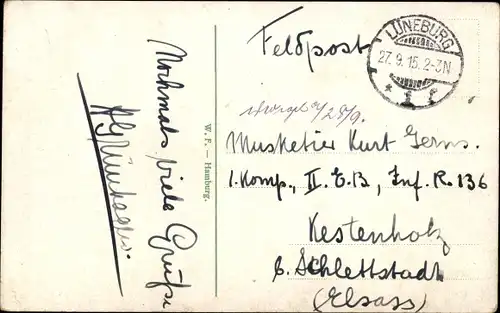 Feldpost
LÜNEBURG
27.9.15. 2-3N
* 1 f
28/9.
Musketier Kurt Gerns.
1. Komp., II. E.B., Inf. R. 136
Kestenholz
b. Schlettstadt
(Elsass)
W. F. — Hamburg.
Nochmals viele Grüße